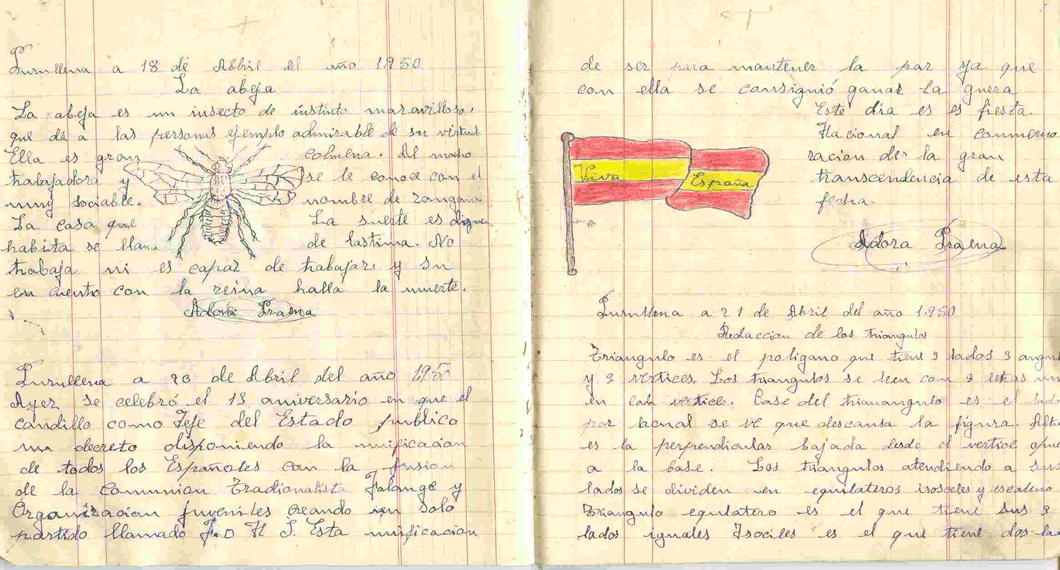 Purullena a 18 de Abril del año 1950
La abeja
La abeja es un insecto de instinto maravilloso,
que da a las personas ejemplo admirable de su virtud
Ella es gran colmena. Al macho
trabajadora y se le conoce con el
muy sociable. nombre de zangano.
La casa que La suerte es digna
habita se llama de lastima. No
trabaja ni es capaz de trabajar, y su
en cuentro con la reina halla la muerte.
Adora Praena
Purullena a 20 de Abril del año 1950
Ayer se celebró el 13 aniversario en que el
caudillo como Jefe del Estado publico
un decreto disponiendo la unificacion
de todos los Españoles con la fusion
de la Comunion Tradionalist Falange y
Organizacion juveniles creando un solo
partido llamado F.O N S. Esta unificacion
de ser para mantener la paz ya que
con ella se consiguió ganar la guera
Este dia es es fiesta
Nacional en conmemo
racion der la gran
transcendencia de esta
fecha.
Viva España
Adora Praena
Purullena a 21 de Abril del año 1.950
Redaccion de los triangulos
Triangulo es el poligano que tiene 3 lados 3 angul
y 3 vertices. Los triangulos se leen con 3 letras un
en cada vertice. Base del trianangulo es el lado
por lacual se ve que descansa la figura. Altu
es la perpendicular bajada desde el vertice opue
a la base. Los triangulos atendiendo a sus
lados se dividen en equilateros isosceles y escaleno
Triangulo equilatero es el que tiene sus 3
lados iguales Isociles es el que tiene dos la